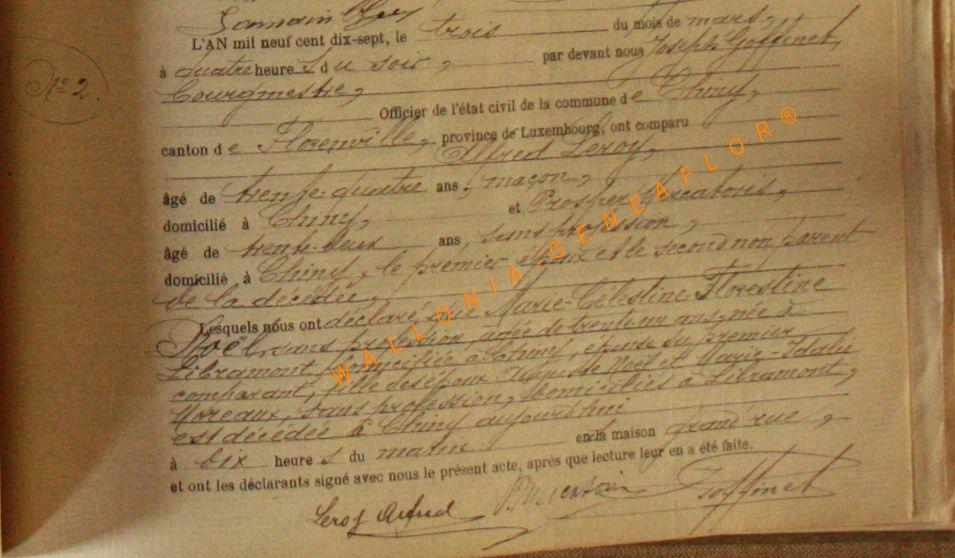 L'AN mil neuf cent dix-sept, le trois du mois de mars,
à quatre heures du soir, par devant nous Joseph Goffinet,
N° 2.
Bourgmestre,
Officier de l'état civil de la commune de Chiny,
canton de Florenville, province de Luxembourg, ont comparu
Alfred Leroy,
âgé de trente-quatre ans, maçon,
domicilié à Chiny, et Prosper
âgé de trente-deux ans, sans profession,
domicilié à Chiny, le premier époux et le second non parent
de la décédée,
Lesquels nous ont déclaré que Marie-Célestine-Florestine
Noël, sans profession, âgée de trente un ans, née à
Libramont, domiciliée à Chiny, épouse du premier
comparant, fille des époux Auguste Noël et Marie-Idalie
Moreaux, sans profession, domiciliés à Libramont,
est décédée à Chiny aujourd'hui
à dix heures du matin en la maison grand'rue,
et ont les déclarants signé avec nous le présent acte, après que lecture leur en a été faite.
Leroy Alfred Goffinet
WALLONIA GENEAFLOR®